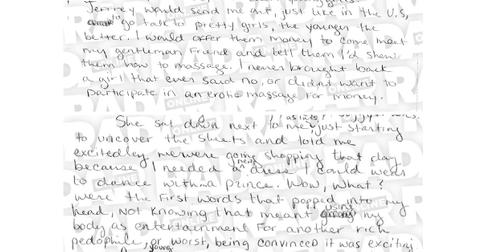 Jeffrey would send me out, just like in the U.S,
go talk to pretty girls, the younger the
better. I would offer them money to come meet
my gentleman friend and tell them I'd show
them how to massage. I never brought back
a girl that ever said no, or didn't want to
participate in an erotic massage for money.
She sat down next to me, just starting
to uncover the sheets and told me
excitedley, me were going shopping that day
because I needed a new dress I could wear
to dance with a prince. Wow, what?
were the first words that popped into my
head, not knowing that meant using my
body as entertainment for another rich
pedophile, worst, being convinced it was exciting
RADAR
ONLINE